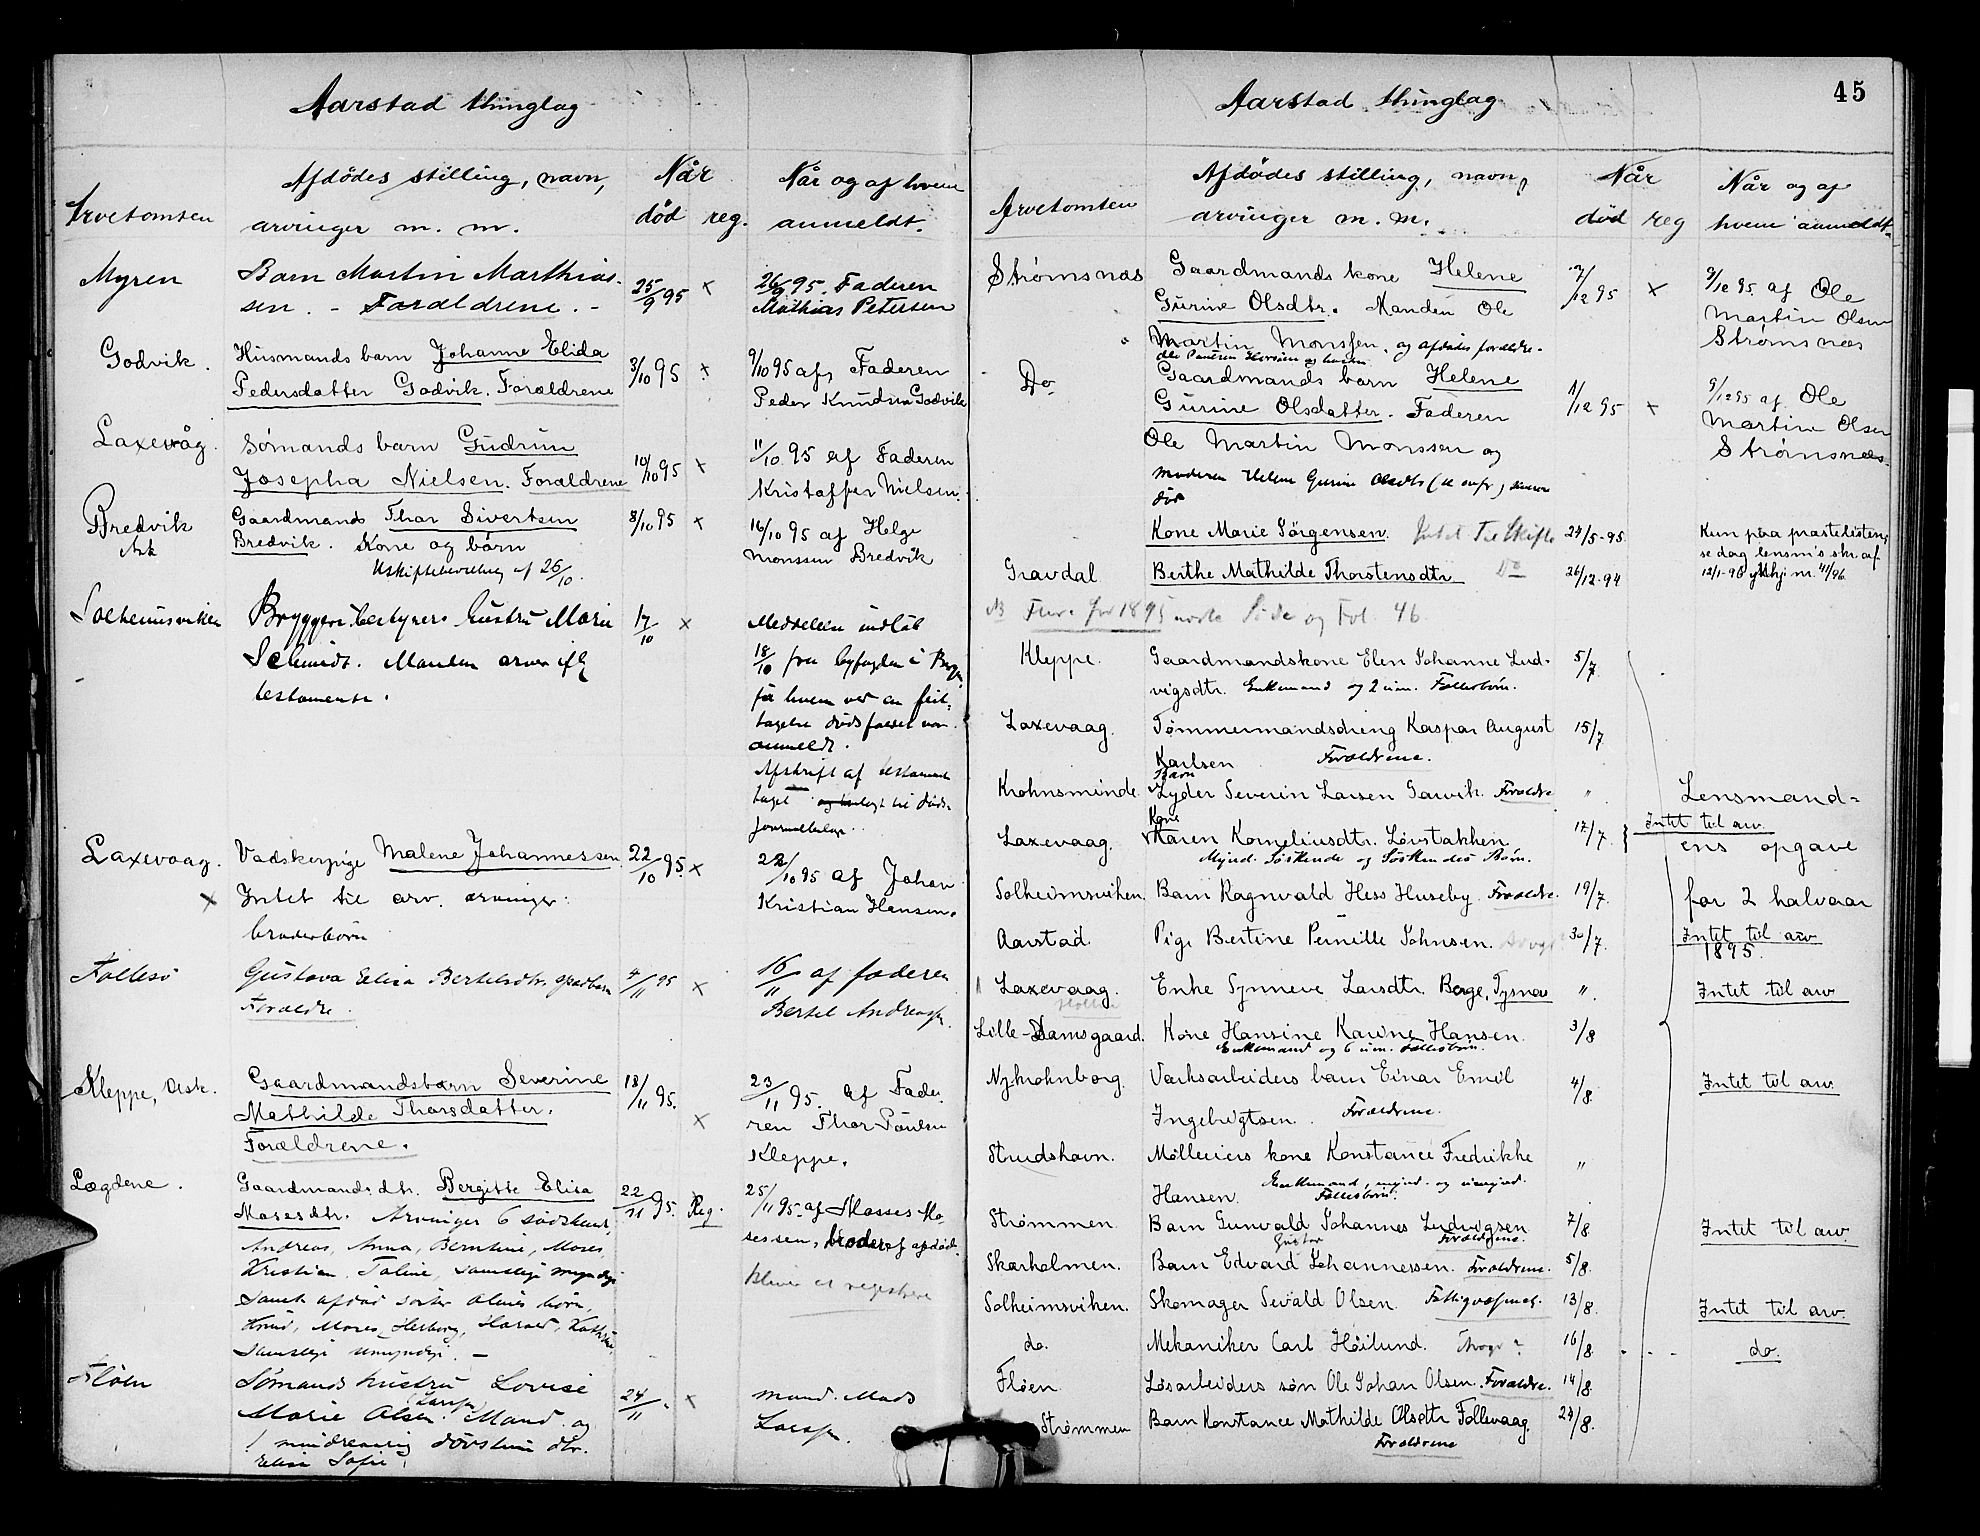 Aarstad thinglag
Arvetomten
Afdødes stilling, navn,
arvinger m. m.
Når
død reg.
Når og af hvem
anmeldt.
Myren
Barn Martin Matthias-
sen. - Forældrene. -
25/9 95 x
26/9 95. Faderen
Mathias Petersen
Godvik.
Husmands barn Johanne Elida
Pedersdatter Godvik. Forældrene
3/10 95 x
9/10 95 af Faderen
Peder Knudsen Godvik
Laxevåg.
Sømands barn Gudrun
Josepha Nielsen. Forældrene
10/10 95 x
11/10 95 af Faderen
Kristoffer Nielsen.
Bredvik
Ask
Gaardmands Thor Sivertsen
Bredvik. Kone og børn
Uskiftebevilling af 26/10.
8/10 95 x
16/10 95 af Helge
Monssen Bredvik
Solheimsviken
Bryggeribestyrers hustru Marie
Schmidt. Manden arver iflg
testamente.
17/10 x
Meddelelse indløb
18/10 fra byfogden i Bergen
for hvem ved en feil-
tagelse dødsfaldet var
anmeldt.
Afskrift af testamente
taget til døds-
Laxevaag.
x
Vadskerpige Malene Johannessen.
Intet til arv. arvinger:
broderbørn
22/10 95. x
22/10 95 af Johan
Kristian Hansen.
Follesø
Gustava Elisa Bertelsdtr. spædbarn
Forældre.
4/11 95 x
16/11 af faderen
Bertel Andreass.
Kleppe, Ask.
Gaardmandsbarn Severine
Mathilde Thorsdatter.
Forældrene.
18/11 95. x
23/11 95. af Fade-
ren Thor Paulsen
Kleppe.
Lægdene.
Gaardmands dtr. Bergitte Elisa
Mosesdtr. Arvinger 6 sødskend,
Andreas, Anna, Berntine, Moses,
Kristian, Taline, samtlige myndige
samt afdød søster Alines børn,
Knud, Moses, Herborg, Harald, Kathrine
samtlige umyndige. -
22/11 95. Reg.
25/11 95. af Mosses Mo-
sessen, broder af afdøde.
bliver at registrere
Fløen
Sømands hustru Lovise
(Larsen)
Marie Olsen. Mand og
1 mindreaarig døvstum dtr.
Elisa Sofie.
24/11 x
mand. Mads
Larsen.
45
Aarstad thinglag
Arvetomten
Afdødes stilling, navn,
arvinger m. m.
Når
død reg
Når og af
hvem anmeldt.
Strømsnæs
Gaardmands kone Helene
Gurine Olsdtr. Manden Ole
Martin Monssen. og afdødes forældre.
7/12 95 x
9/12 95. af Ole
Martin Olsen
Strømsnæs
Do
Gaardmands barn Helene
Gurine Olsdatter. Faderen
Ole Martin Monssen og
moderen Helene Gurine Olsdtr (se ovfr)
død
1/12 95 x
9/12 95 af Ole
Martin Olsen
Strømsnæs.
Kone Marie Jörgensen. Intet Til Skifte
24/5-95.
Kun paa prestelisten,
se dog lensm's skr. af
12/1-96 jr. 41/96.
Gravdal
Berthe Mathilde Thorstensdtr Do
26/12-94
NB Flere for 1895 næste Side og Fol. 46.
Kleppe.
Gaardmandskone Elen Johanne Lud-
vigsdtr. Enkemand og 2 um. Fællesbörn.
5/7.
Laxevaag.
Tømmermandsdreng Kaspar August
Karlsen Forældrene.
15/7
Krohnsminde.
Barn
Lyder Severin Larsen Garvik. Forældre
"
Laxevaag.
Kone
Karen Korneliusdtr. Løvstakken
Mynd. Söskende og Söskendes Börn.
17/7.
Intet til arv
Lensmand-
ens opgave
for 2 halvaar
1895.
Solheimsviken.
Barn Ragnvald Hess Huseby. Forældre.
19/7.
Aarstad.
Pige Bertine Pernille Johnsen.
30/7.
Intet til arv
Laxevaag.
Enke Synneve Larsdtr. Berge, Tysnæs
".
Intet til arv
Lille-Damsgaard.
Kone Hansine Karine Hansen.
Enkemand og 6 um. Fællesbörn.
3/8
Nykrohnborg.
Værksarbeiders barn Einar Emil
Ingebrigtsen. Forældrene.
4/8.
Intet til arv
Strudshavn.
Möllereiers kone Konstance Fredrikke
Hansen. Enkemand, mynd. og umynd.
Fællesbörn.
"
Strømmen.
Barn Gunvald Johannes Ludvigsen
Gustav Forældrene.
7/8.
Intet til arv.
Skarholmen.
Barn Edvard Johannessen. Forældrene.
5/8.
Solheimsviken.
Skomager Sevald Olsen. Fattigvæsenet.
13/8.
Intet til arv.
do.
Mekaniker Carl Höilund.
16/8.
do.
Fløen.
Løsarbeiders søn Ole Johan Olsen. Forældre.
14/8.
Strømmen
Barn Konstance Mathilde Olsdtr Follevaag.
Forældrene
24/8.